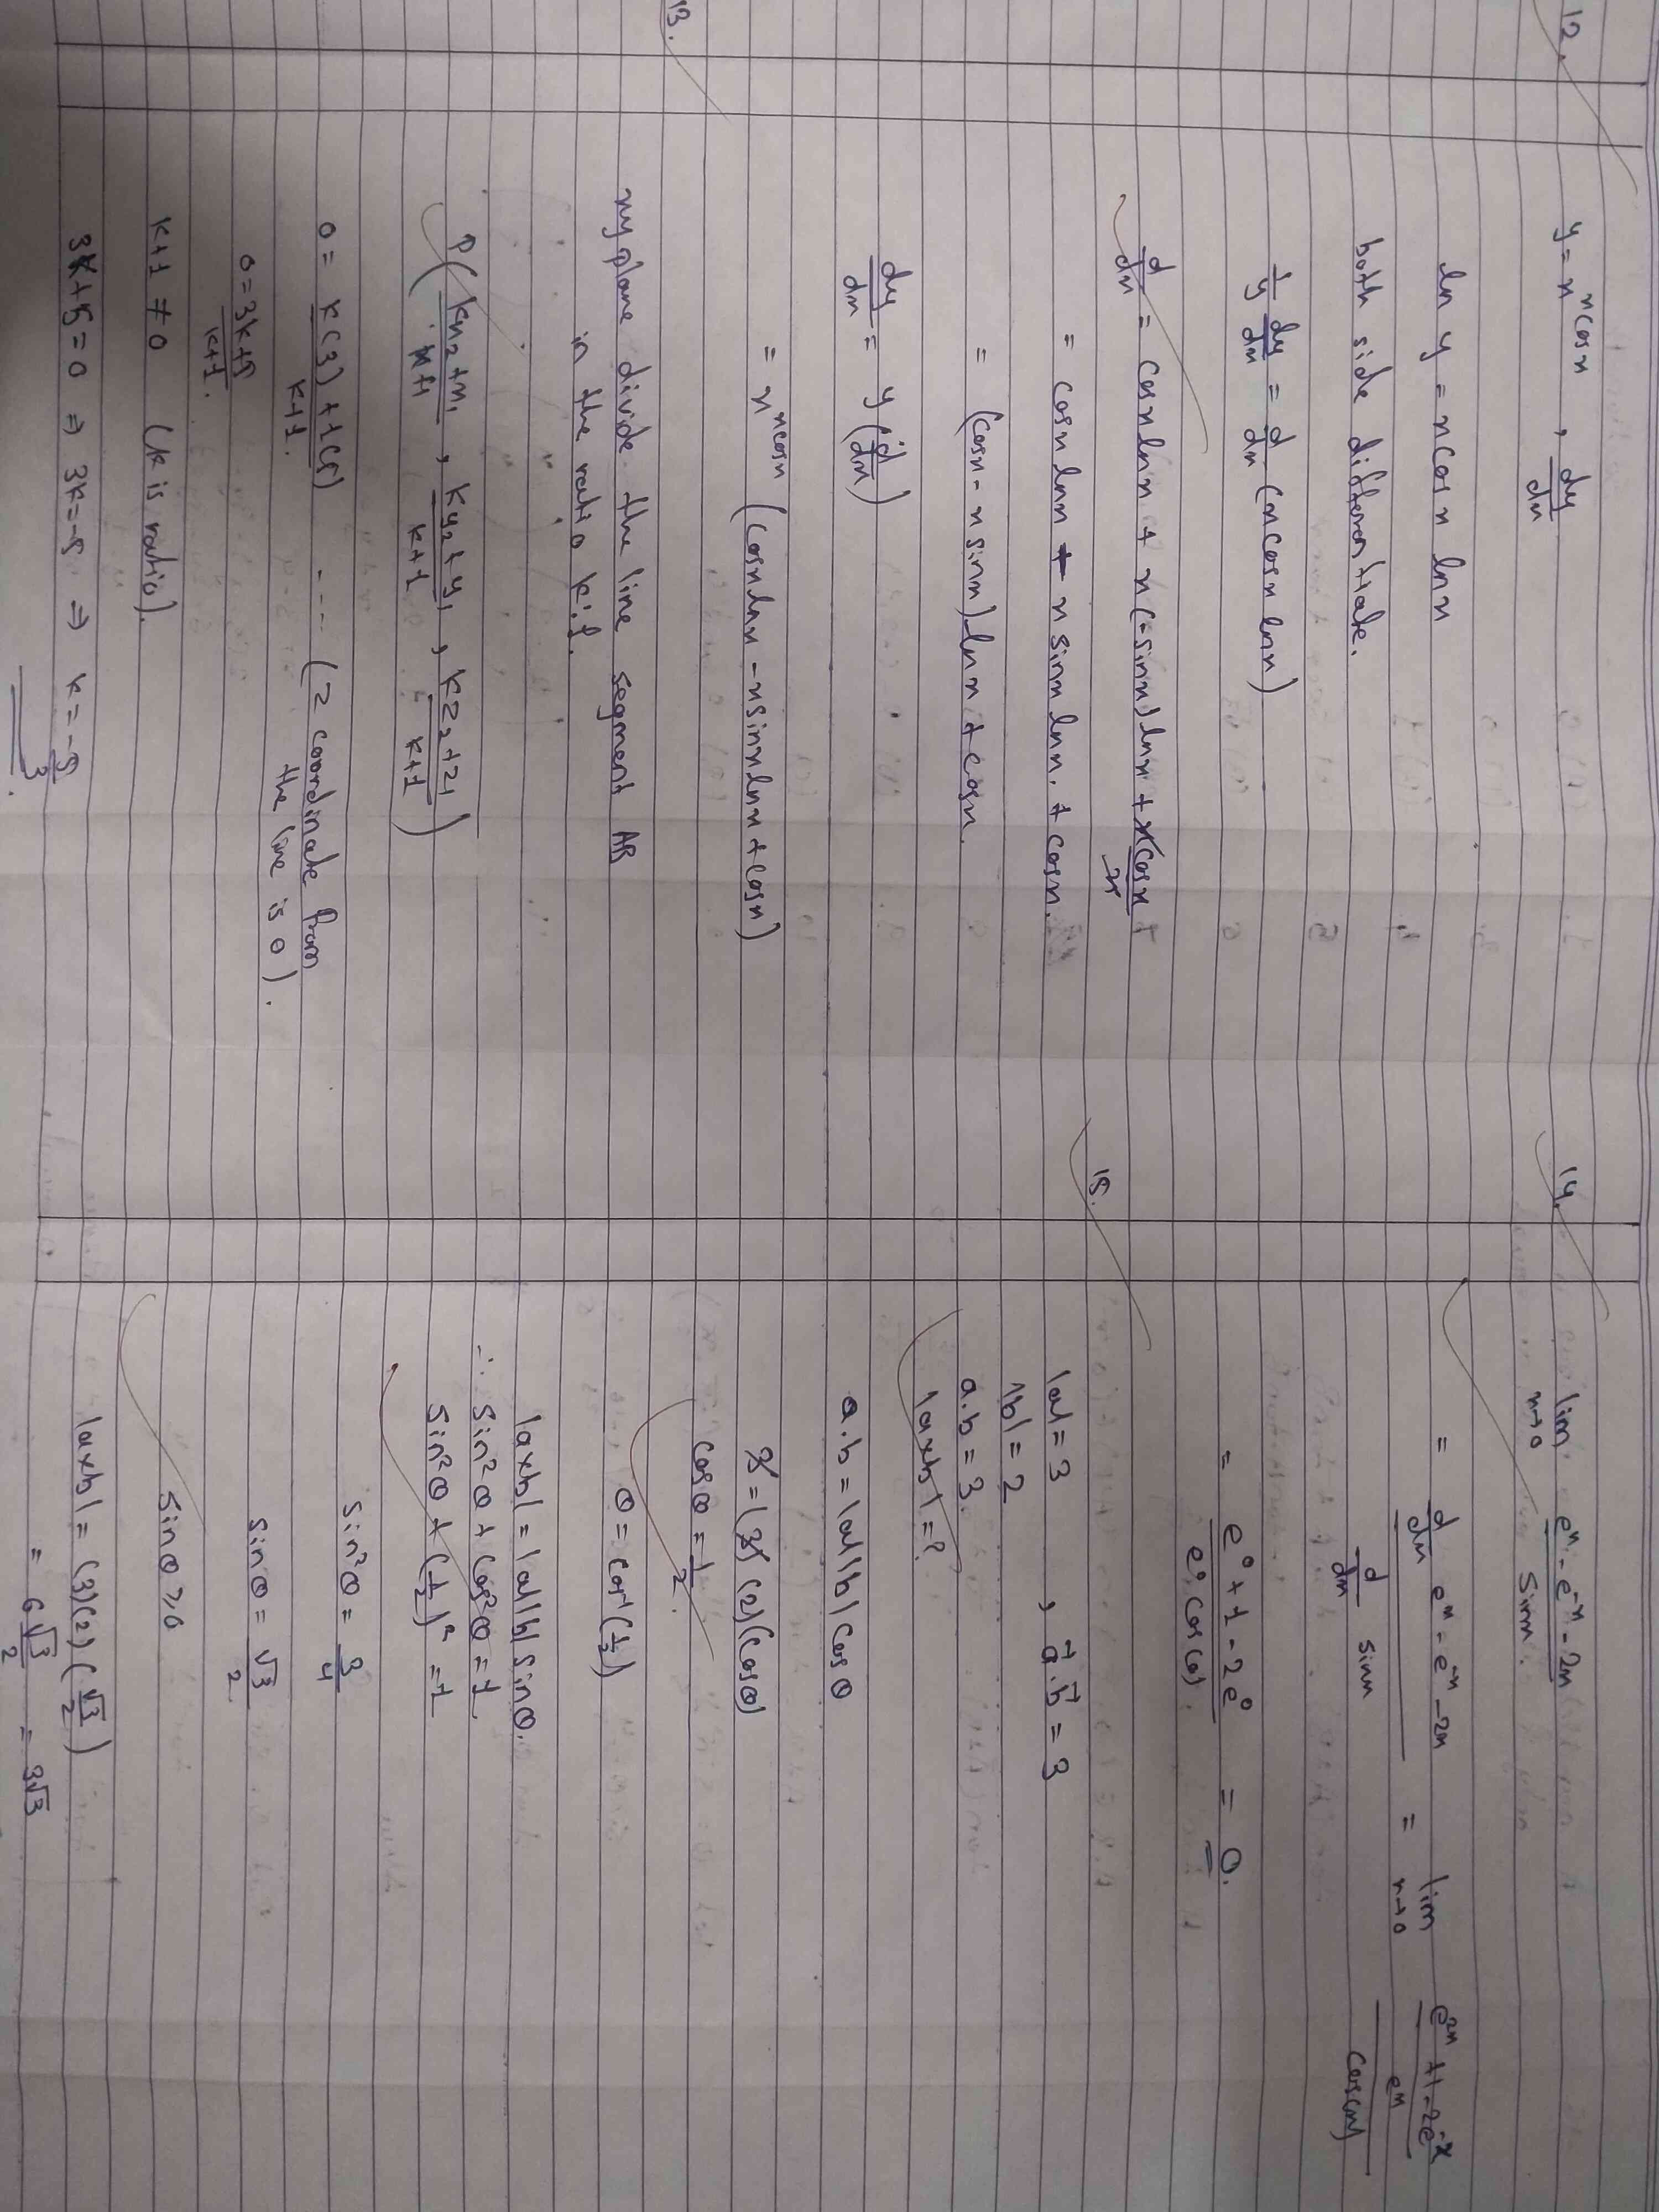 12.
y = x^{x cos x} , dy/dx
ln y = x cos x ln x
both side differentiate.
1/y dy/dx = d/dx (x cos x ln x)
d/dx = cos x ln x + x (-sin x) ln x + x cos x / x
= cos x ln x - x sin x ln x. + cos x.
= (cos x - x sin x) ln x + cos x.
dy/dx = y (d/dx)
= x^{x cos x} (cos x ln x - x sin x ln x + cos x)
13.
xy plane divide the line segment AB
in the ratio k:1.
P ( kx₂ + x₁ / k+1 , ky₂ + y₁ / k+1 , kz₂ + z₁ / k+1 )
0 = k(3) + 1(5) / k+1. - - - - (z coordinate from
the line is 0).
0 = 3k+5 / k+1.
k+1 ≠ 0 (k is ratio).
3k+5 = 0 ⇒ 3k = -5 ⇒ k = -5/3.
14.
lim x→0 e^x - e^{-x} - 2x / sin x.
= d/dx e^x - e^{-x} - 2x / d/dx sin x = lim x→0 e^{2x} + 1 - 2e^x / e^x / cos(x)
= e⁰ + 1 - 2e⁰ / e⁰. cos(0). = 0.
15.
|a| = 3 , a⃗.b⃗ = 3
|b| = 2
a.b = 3.
|a×b| = ?
a.b = |a| |b| cos θ
3 = (3) (2) (cos θ)
cos θ = 1/2.
θ = cos⁻¹ (1/2)
|a×b| = |a| |b| sin θ.
∴ sin² θ + cos² θ = 1
sin² θ + (1/2)² = 1
sin² θ = 3/4
sin θ = √3/2
sin θ ≥ 0
|a×b| = (3)(2) (√3/2)
= 6√3/2 = 3√3